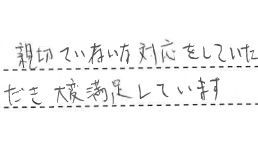 親切ていねいな対応をしていた
だき 大変満足しています